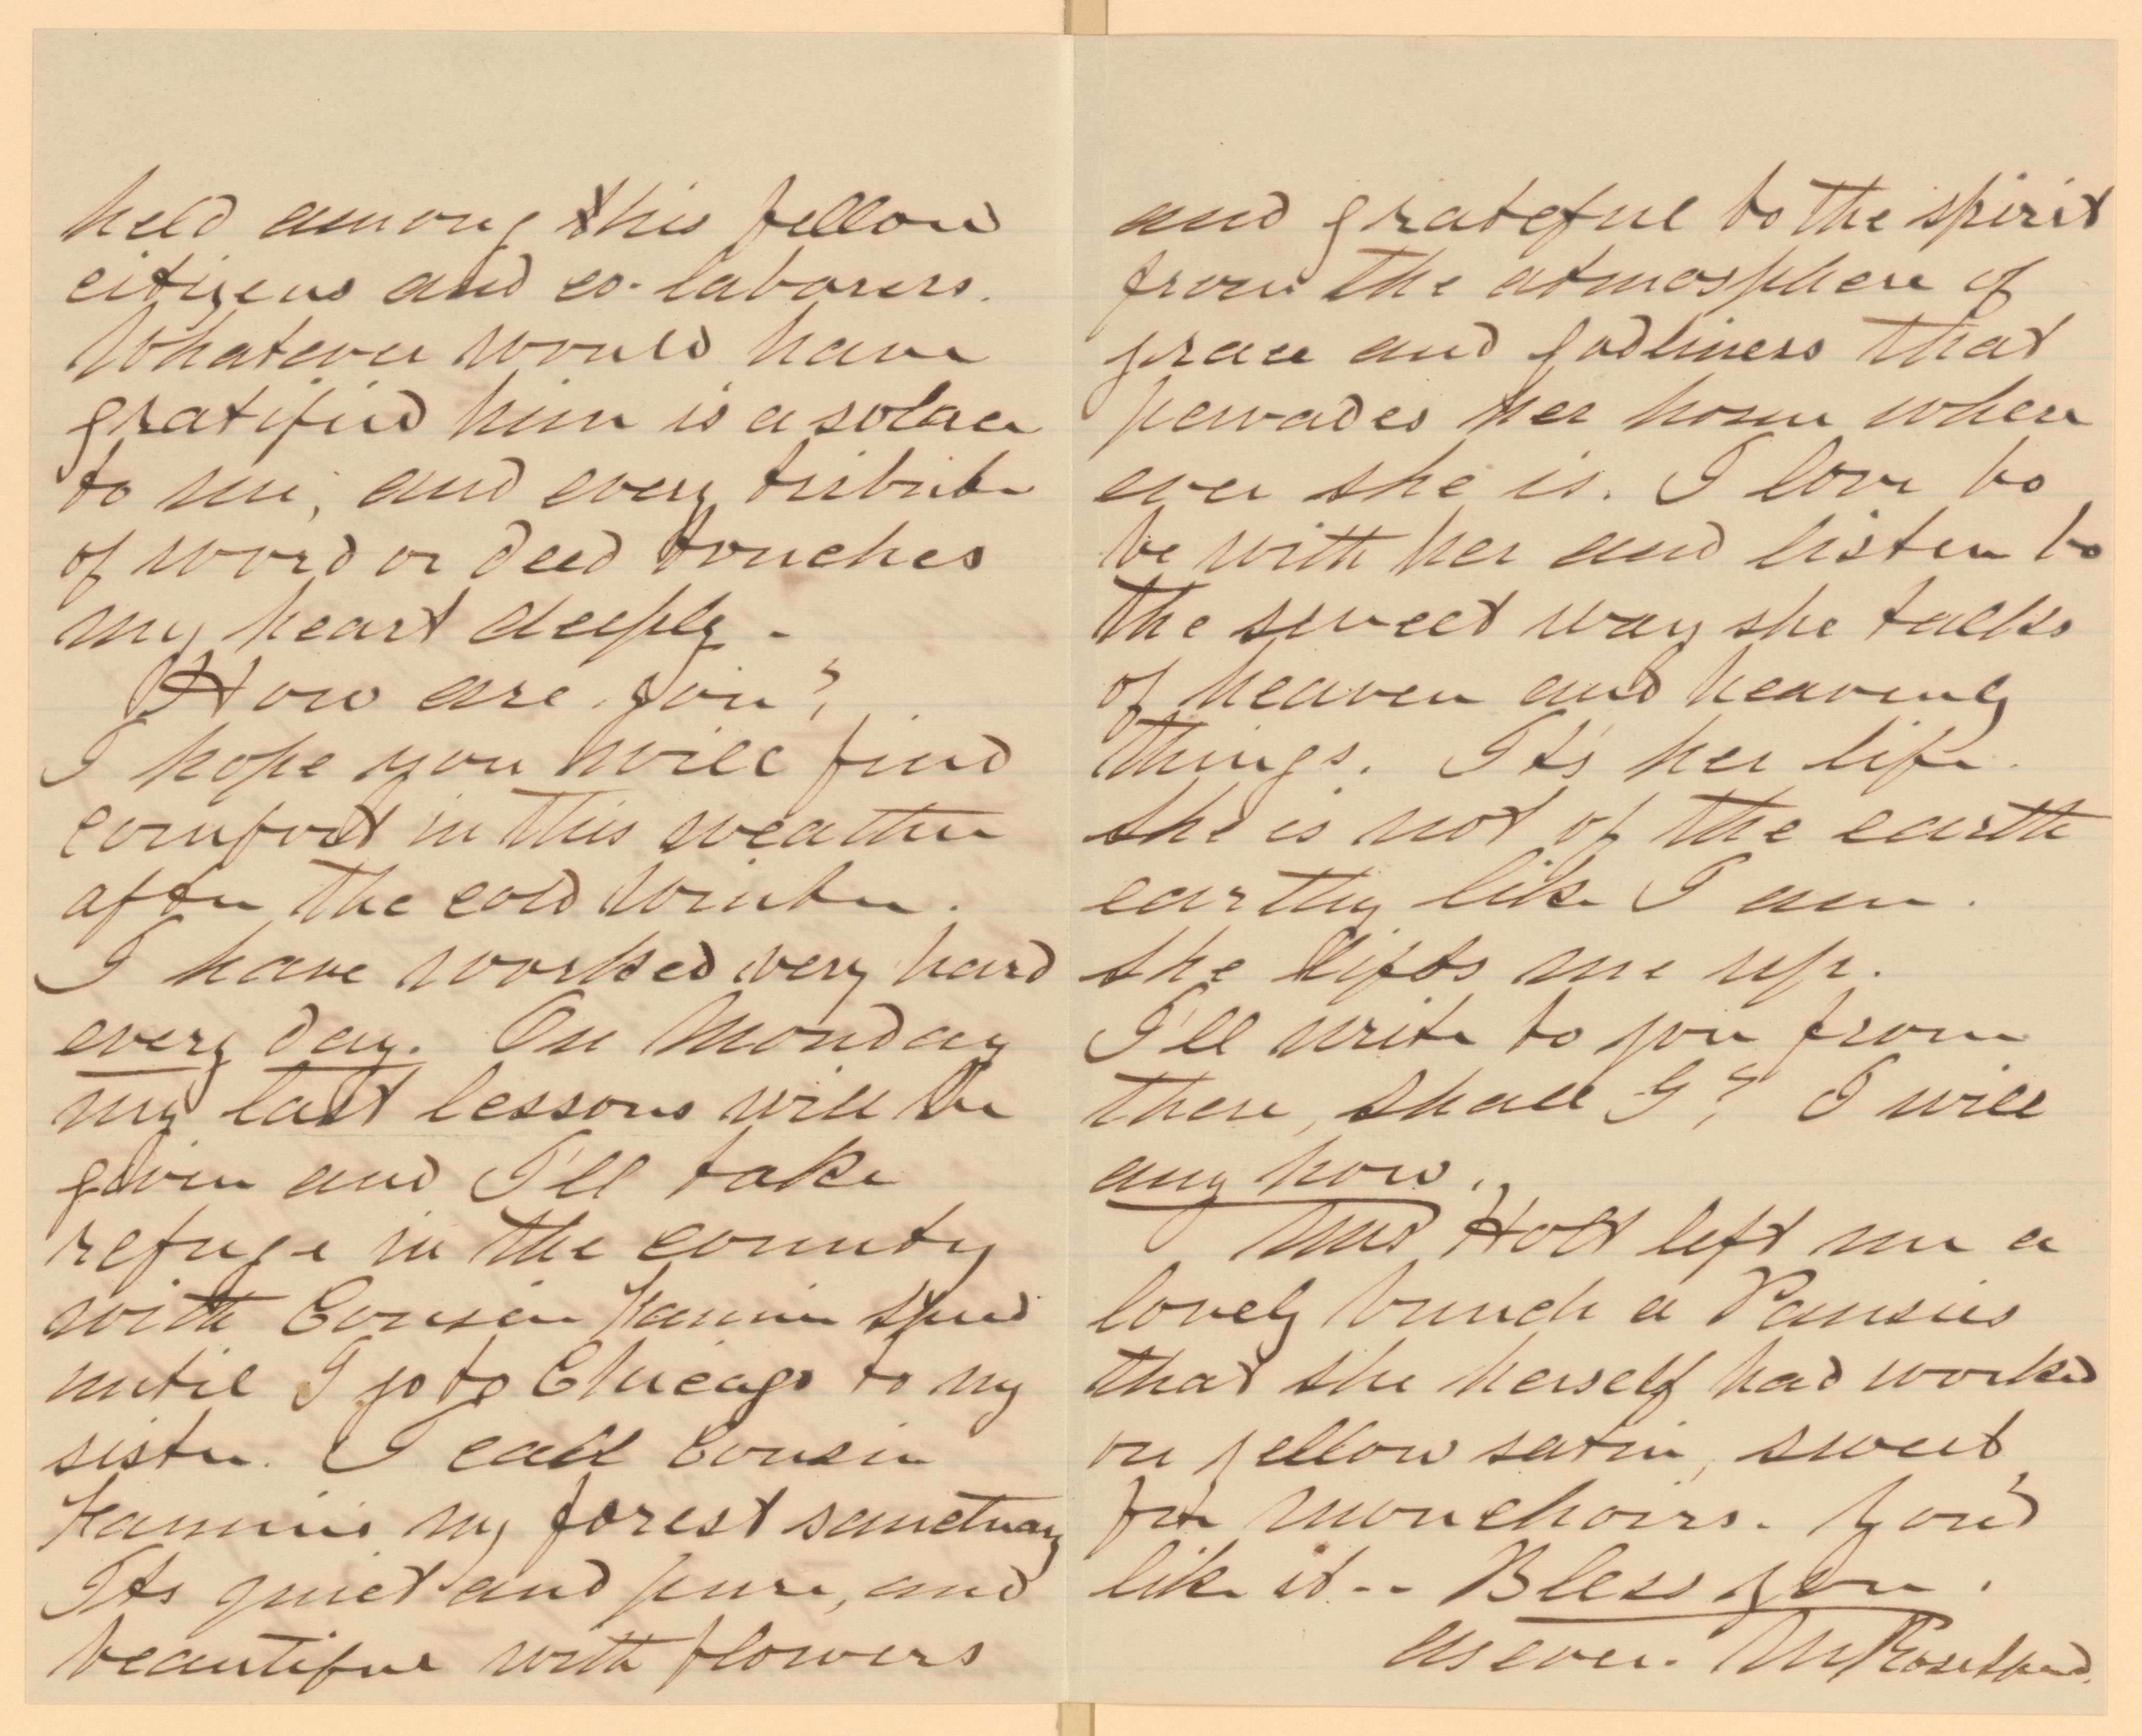 held among his fellow
citizens and co-laborers.
Whatever would have
gratified him is a solace
to me, and every tribute
of word or deed touches
my heart deeply -
How are you?
I hope you will find
comfort in this weather
after the cold winter.
I have worked very hard
every day. On Monday
my last lessons will be
given and I'll take
refuge in the county
with Cousin Fannie Speed
until I go to Chicago to my
sister. I call Cousin
Fannie's my forest sanctuary
Its quiet and pure, and
beautiful with flowers
and grateful to the spirit
from the atmosphere of
grace and godliness that
pervades her home when
ever she is. I love to
be with her and listen to
the sweet way she talks
of heaven and heavenly
things. Its her life.
She is not of the earth
earthy like I am.
She lifts me up.
I'll write to you from
there, shall I? I will
any how.
Mrs Holt left me a
lovely bunch a Pansies
that she herself had worked
on yellow satin, sweet
for mouchoirs. You'd
like it -- Bless you.
As ever. M